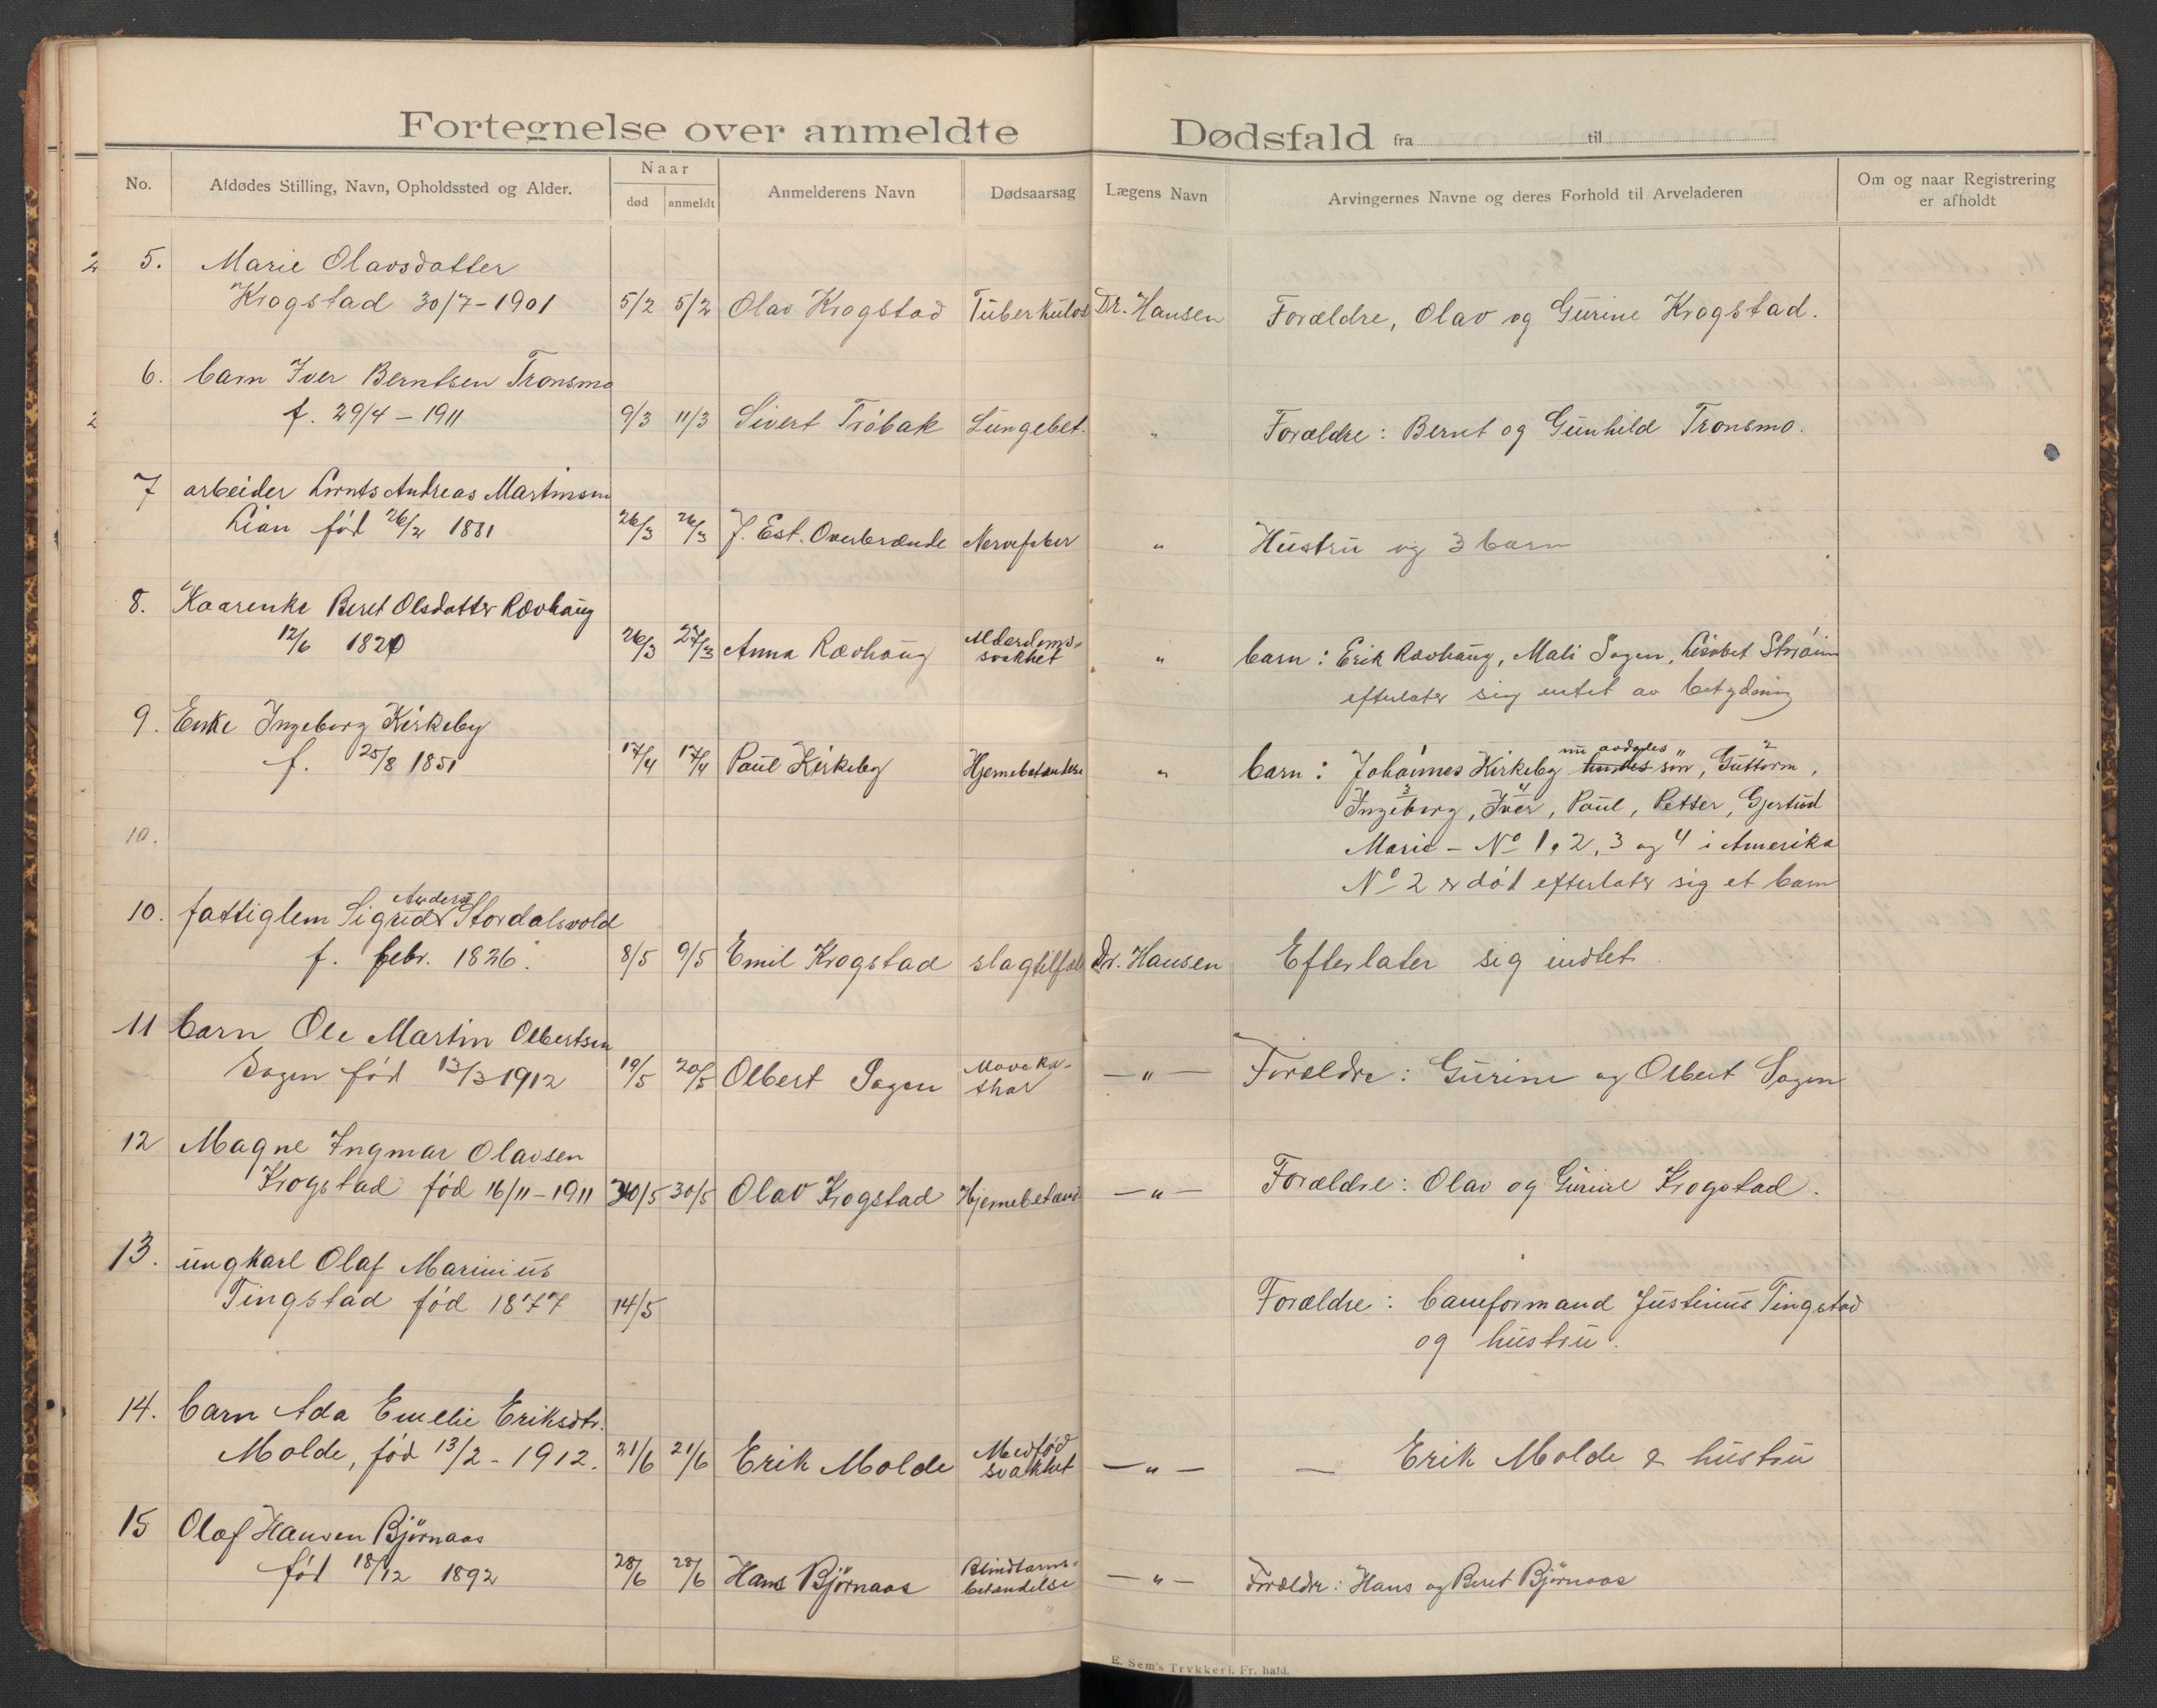 Fortegnelse over anmeldte Dødsfald fra til
No. Afdødes Stilling, Navn, Opholdssted og Alder. Naar død anmeldt Anmelderens Navn Dødsaarsag Lægens Navn Arvingernes Navne og deres Forhold til Arveladeren Om og naar Registrering er afholdt
5. Marie Olavsdatter
Krogstad 30/7-1901 5/2 5/2 Olav Krogstad Tuberkulos Dr. Hansen Forældre, Olav og Gurine Krogstad.
6. barn Iver Berntsen Tronsmo
f. 29/4 - 1911 9/3 11/3 Sivert Tröbak Lungebet. " Forældre: Bernt og Gunhild Tronsmo.
7 arbeider Lornts Andreas Martinsen
Lian fød 26/2 1881 26/3 26/3 J. Est. Overbrænde Nervefeber " Hustru og 3 barn
8. Kaarenke Beret Olsdatter Rævhaug
12/6 1820 26/3 27/3 Anna Rævhaug Alderdoms- svakhet " barn: Erik Rævhaug, Mali Sagen, Lisabet
efterlater sig intet av betydning
9. Enke Ingeborg Kirkeby
f. 25/8 1851 17/4 17/4 Paul Kirkeby Hjernebetændelse " barn: Johannes Kirkeby nu avdødes hendes søn, Guttorm,
Ingeborg, Iver, Paul, Petter, Gjertrud
Marie - No 1, 2, 3 og 4 i Amerika
No 2 er död efterlater sig et barn
10.
10. fattiglem Sigrid Andersd. Stordalsvold
f. febr. 1836. 8/5 9/5 Emil Krogstad slagtilfæld Dr. Hansen Efterlater sig indtet.
11 barn Ole Martin Olbertsen
Sagen fød 13/3 1912 19/5 20/5 Olbert Sagen Mavekathar - " - Forældre: Gurine og Olbert Sagen
12 Magne Ingmar Olavsen
Krogstad fød 16/11-1911 30/5 30/5 Olav Krogstad Hjernebetænd - " - Forældre: Olav og Gurine Krogstad.
13. ungkarl Olaf Marinius
Tingstad fød 1877 14/5 Forældre: baneformand Justinus Tingstad
og hustru.
14. barn Ada Emelie Eriksdtr.
Molde, fød 13/2-1912. 21/6 21/6 Erik Molde Medfød svakhet - " - — Erik Molde & hustru
15 Olaf Hansen Björnaas
fød 18/12 1892 28/6 28/6 Hans Björnaas Blindtarms- betændelse - " - Forældre: Hans og Beret Björnaas
E. Sem's Trykkeri, Fr. hald.